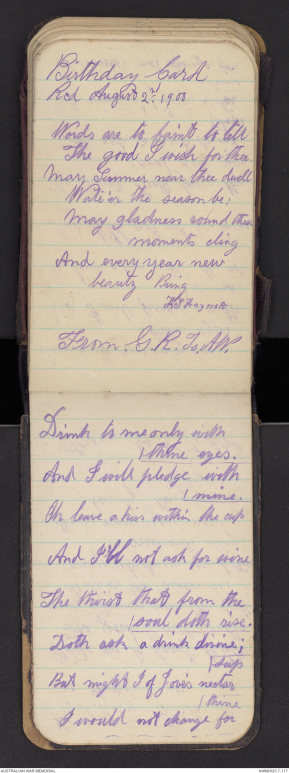 Birthday Card
Rcd August 2nd 1900
Words are to faint to tell
The good I wish for thee
May Summer near thee dwell
Wate'er the season be;
May gladness round thee
moments cling
And every year new
beauty bring
From. G.R. To. A.W.
Drink to me only with
thine eyes.
And I will pledge with
mine.
Or leave a kiss within the cup
And I'll not ask for wine
The thirst that from the
soul doth rise.
Doth ask a drink divine;
But might I of Jove's nectar
sup
I would not change for
thine
AUSTRALIAN WAR MEMORIAL